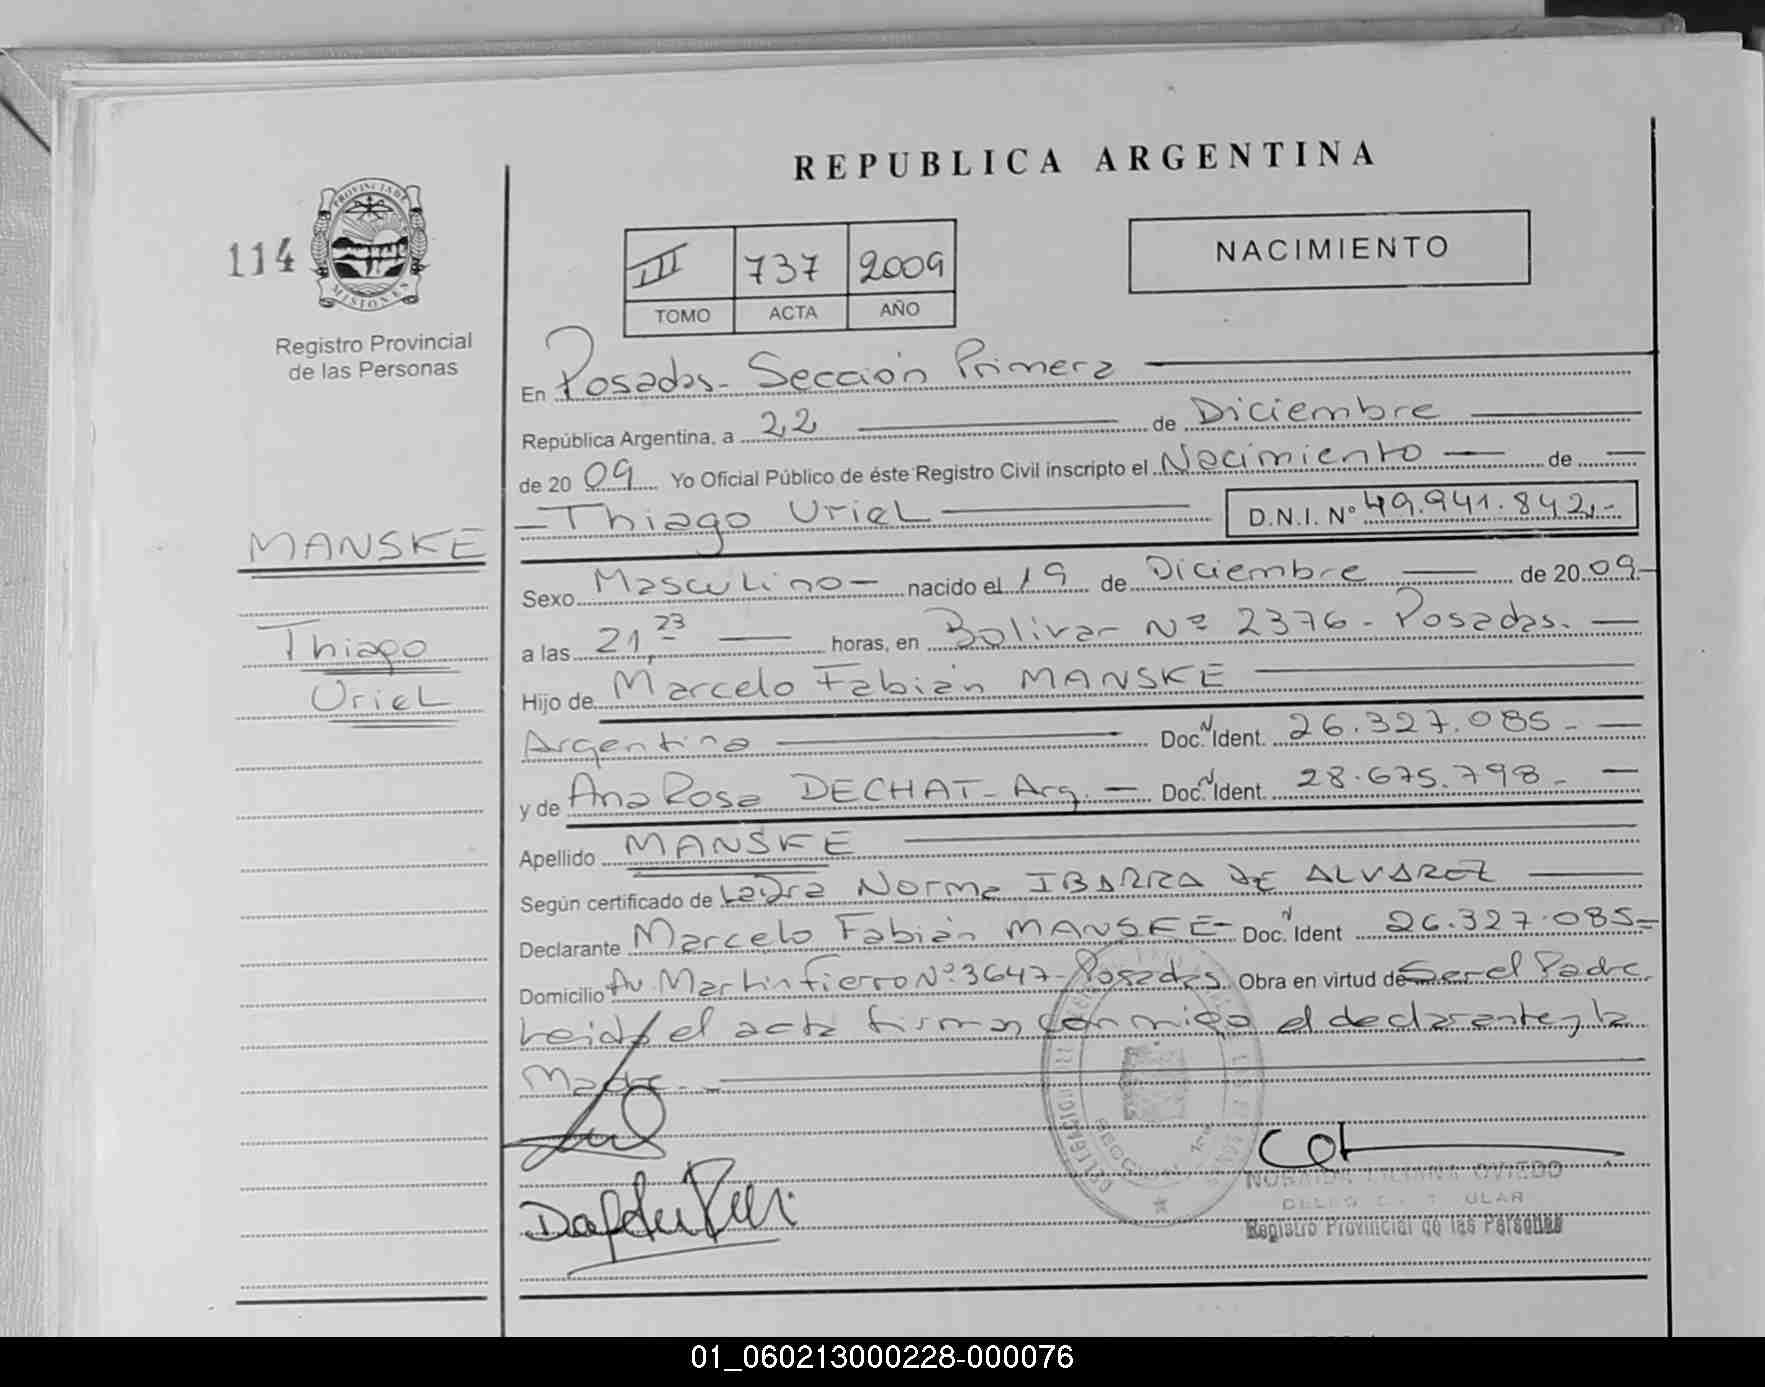 REPUBLICA ARGENTINA
114
PROVINCIA DE
MISIONES
Registro Provincial
de las Personas
III 737 2009
TOMO ACTA AÑO
NACIMIENTO
En Posadas - Sección Primera
República Argentina, a 22 de Diciembre
de 20 09 Yo Oficial Público de éste Registro Civil inscripto el Nacimiento de
Thiago Uriel D.N.I. Nº 49.941.842.-
MANSKE
Thiago
Uriel
Sexo Masculino - nacido el 19 de Diciembre de 20 09-
a las 21,23 horas, en Bolivar Nº 2376 - Posadas.
Hijo de Marcelo Fabián MANSKE
Argentino Doc. Nº Ident. 26.327.085 -
y de Ana Rosa DECHAT - Arg. - Doc. Nº Ident. 28.675.798 -
Apellido MANSKE
Según certificado de Laura Norma IBARRA DE ALVAREZ
Declarante Marcelo Fabián MANSKE - Doc. Nº Ident 26.327.085 -
Domicilio Av. Martin Fierro Nº 3647 - Posadas. Obra en virtud de Ser el Padre.
Leida el acta firman conmigo el declarante y la
Madre. -
OVIEDO
Registro Provincial de las Personas
01_060213000228-000076